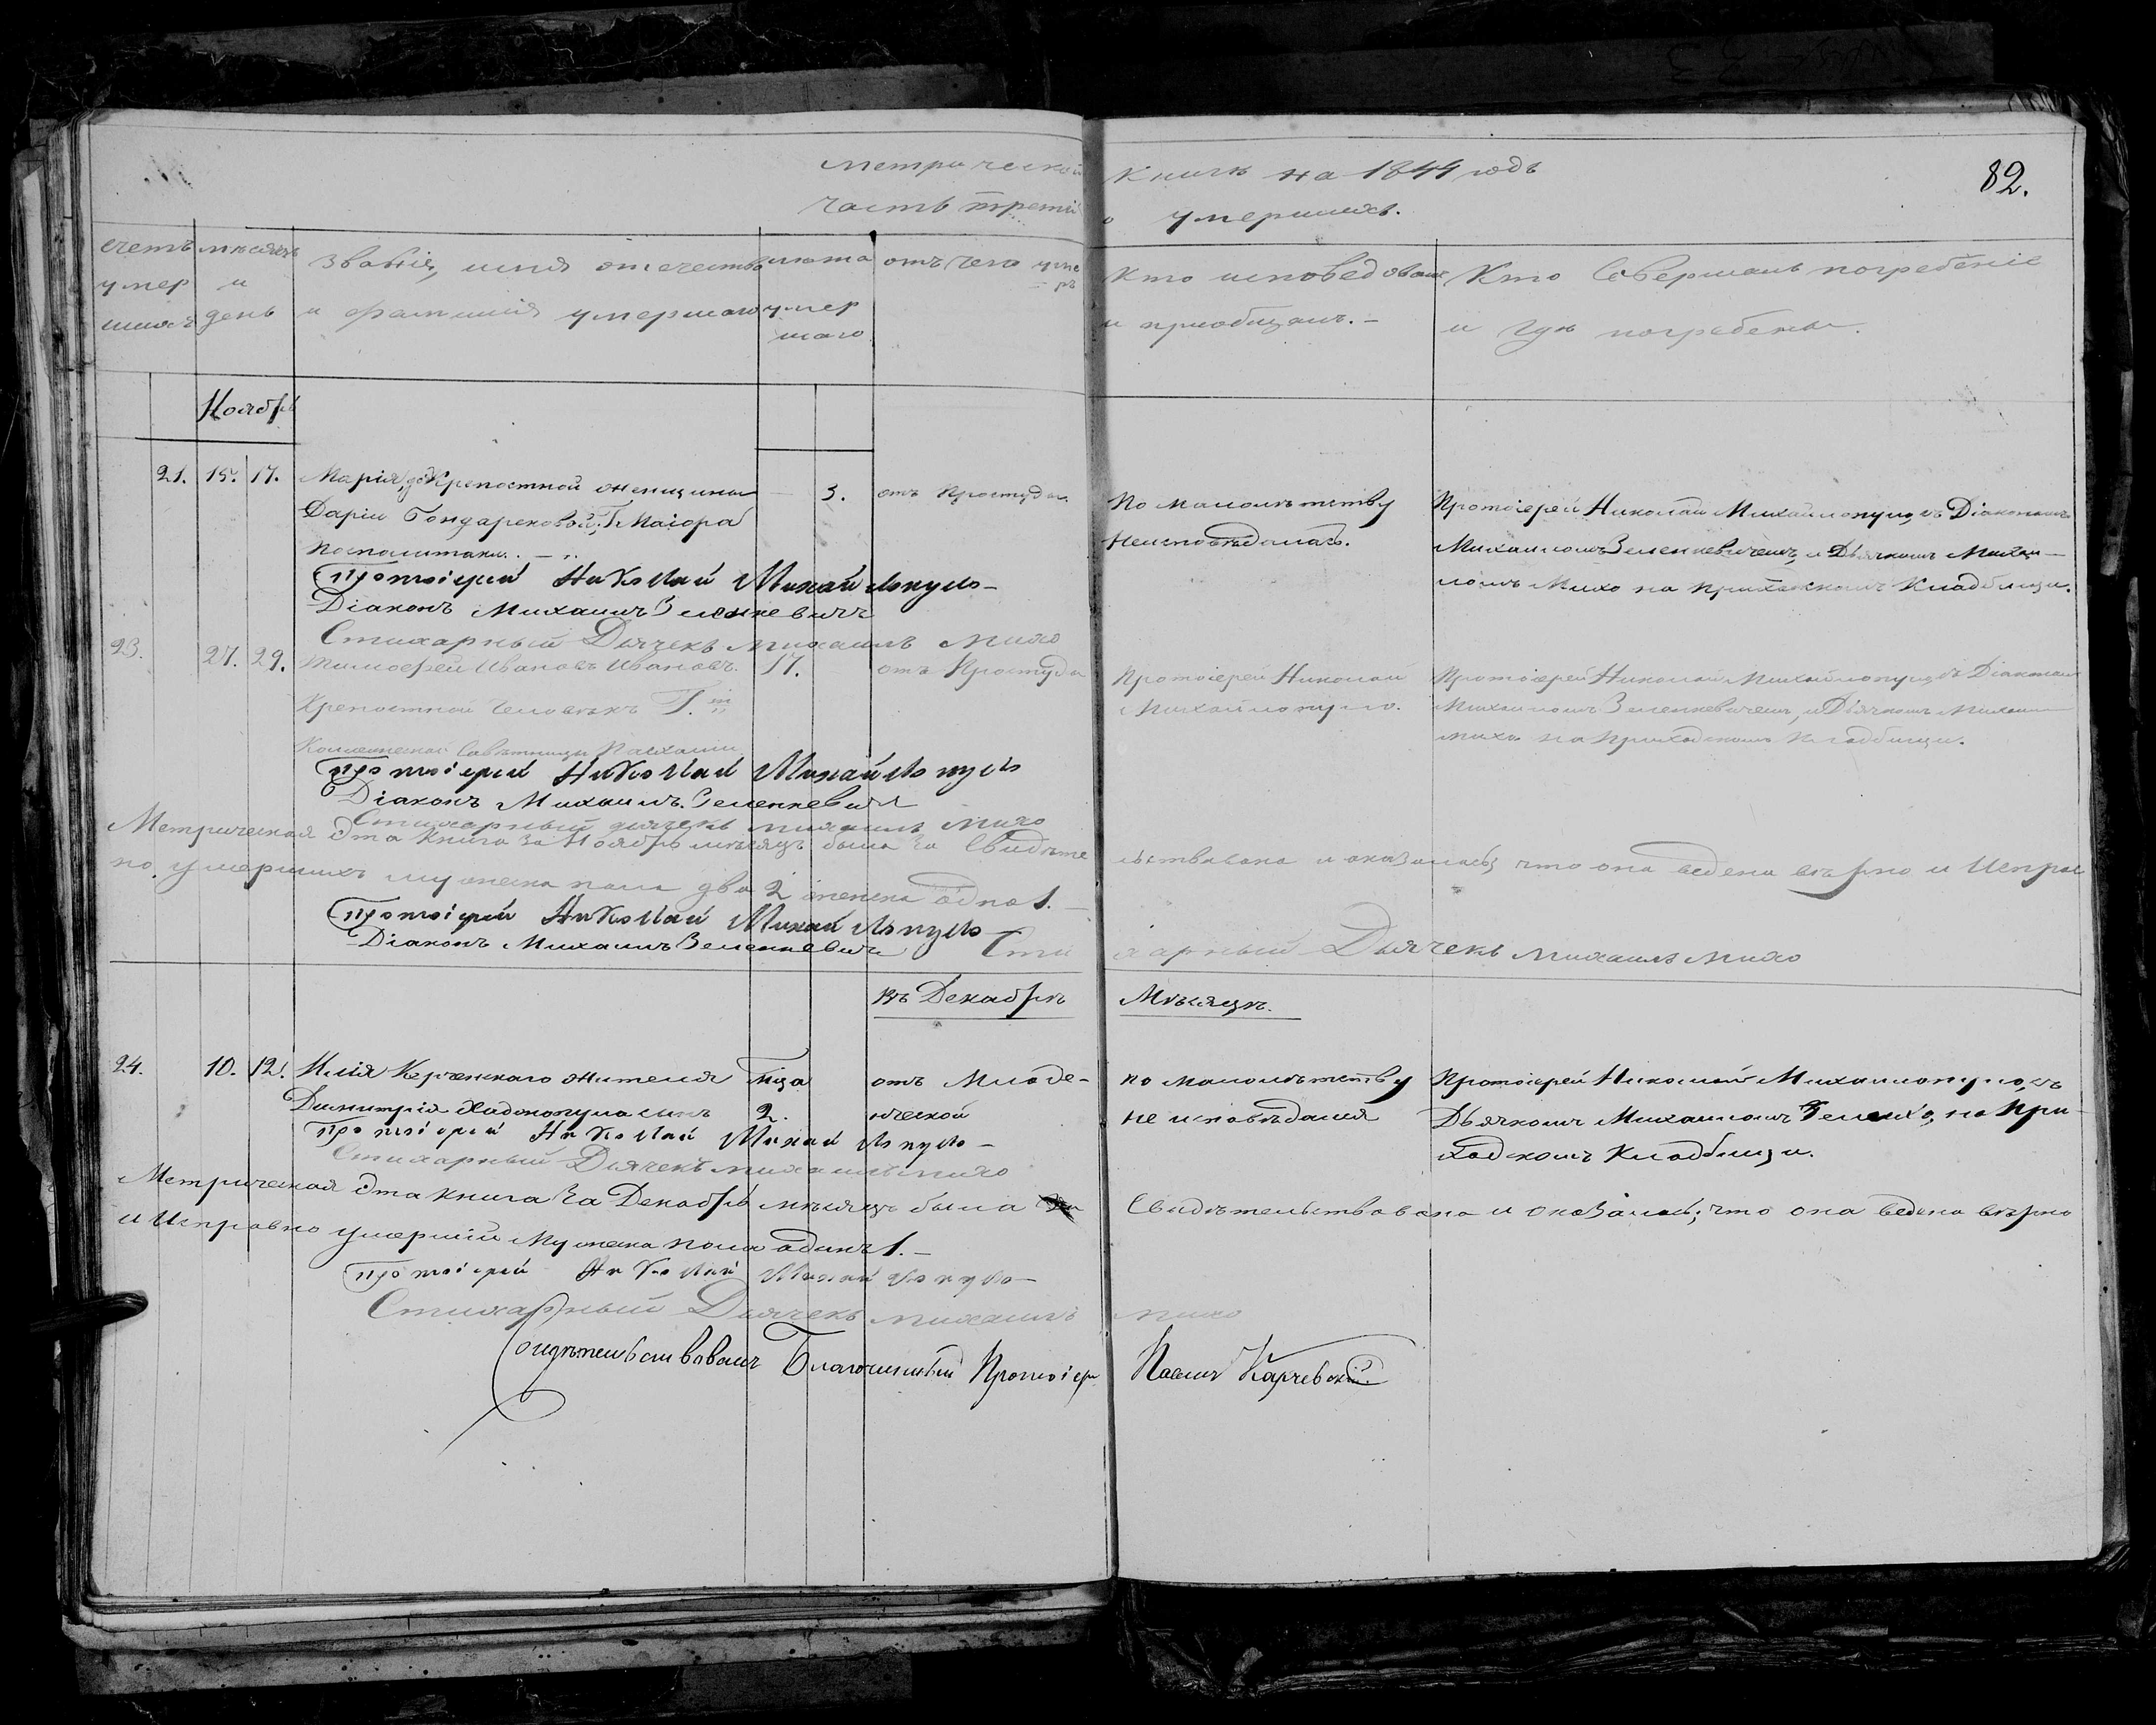 метрической книги на 1844 годъ
82.
часть третiя о умершихъ.
счетъ умершихъ
мѣсяцъ и день
званiе, имя отечество и фамилiя умершаго
лѣта умершаго
отъ чего умеръ
Кто исповедовалъ и прiобщалъ.-
Кто Совершалъ погребенiе и гдѣ погребены.
Ноябрь
21. 15. 17. Марiя, Крепостной женщины
Дарiи Бондаренковой, Гжи Маiора
3.
отъ Простуды.
По малолѣтству
Неисповѣдалась.
Протоiерей Николай Михайлопуло, съ Дiакономъ
Михаиломъ Зеленкевичемъ, и Дьячкомъ Михаи-
ломъ Михо на Приходскомъ Кладбищи.
Протоiерей Николай Михайлопуло-
Дiаконъ Михаилъ Зеленкевичъ
Стихарный Дьячекъ михаилъ михо
23. 27. 29. Тимофей Ивановъ Ивановъ.
Крепостной Человѣкъ Г.
Коллежской Совѣтницы
17.
отъ Простуды
Протоiерей Николай
Михайлопуло.
Протоiерей Николай Михайлопуло, съ Дiакономъ
Михаиломъ Зеленкевичемъ, и Дьячкомъ Михаил
михо на Приходскомъ Кладбищи.
Протоiерей Николай Михайлопуло
Дiаконъ Михаилъ Зеленкевичъ
Стихарный дьячекъ михаилъ михо
Метрическая Эта Книга За Ноябрь мѣсяцъ была За Свидѣтельствована и оказалась, что она ведена вѣрно и Исправ
но. умершихъ мужеска пола два 2 женска одна 1.-
Протоiерей Николай Михайлопуло
Дiаконъ Михаилъ Зеленкевичъ Стихарный Дьячекъ михаилъ михо
въ Декабрѣ Мѣсяцѣ.
24. 10. 12. Илiя Керченскаго жителя
Димитрiя Хаджопула сынъ
2.
отъ Младе-
нческой
по малолѣтству
не исповѣдался
Протоiерей Николай Михайлопуло, съ
Дьячкомъ Михаиломъ на При-
ходскомъ Кладбищи.
Протоiерей Николай Михайлопуло-
Стихарный Дьячекъ михаилъ михо
Метрическая Эта книга За Декабрь мѣсяцъ была Свидѣтельствована и оказалась, что она ведена вѣрно
и Исправно умершiй Мужеска пола одинъ 1.-
Протоiерей Николай Михайлопуло-
Стихарный Дьячекъ михаилъ михо
Свидѣтельствовалъ Благочинный Протоiерей Павелъ Карчевскiй